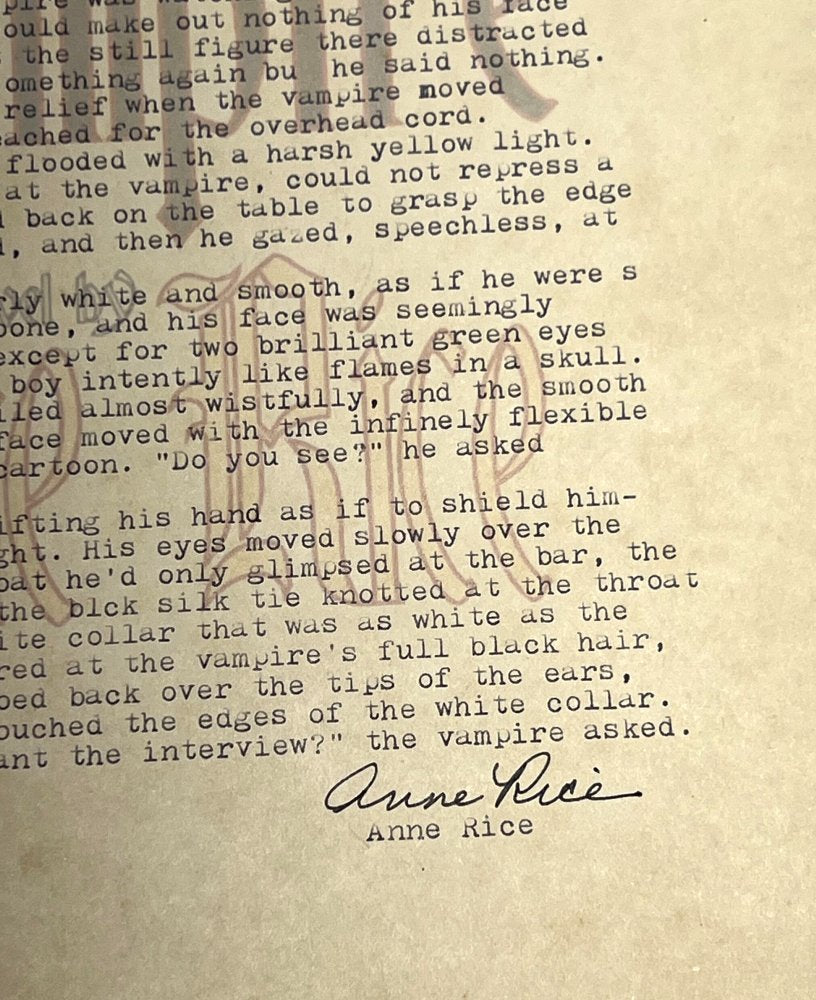 pire was
ould make out nothing of his face
the still figure there distracted
omething again bu he said nothing.
relief when the vampire moved
eached for the overhead cord.
flooded with a harsh yellow light.
at the vampire, could not repress a
back on the table to grasp the edge
, and then he gazed, speechless, at
rly white and smooth, as if he were s
bone, and his face was seemingly
except for two brilliant green eyes
boy intently like flames in a skull.
iled almost wistfully, and the smooth
face moved with the infinely flexible
cartoon. "Do you see?" he asked
ifting his hand as if to shield him-
ght. His eyes moved slowly over the
oat he'd only glimpsed at the bar, the
the blck silk tie knotted at the throat
ite collar that was as white as the
red at the vampire's full black hair,
bed back over the tips of the ears,
ouched the edges of the white collar.
ant the interview?" the vampire asked.
Anne Rice
Anne Rice
Rice